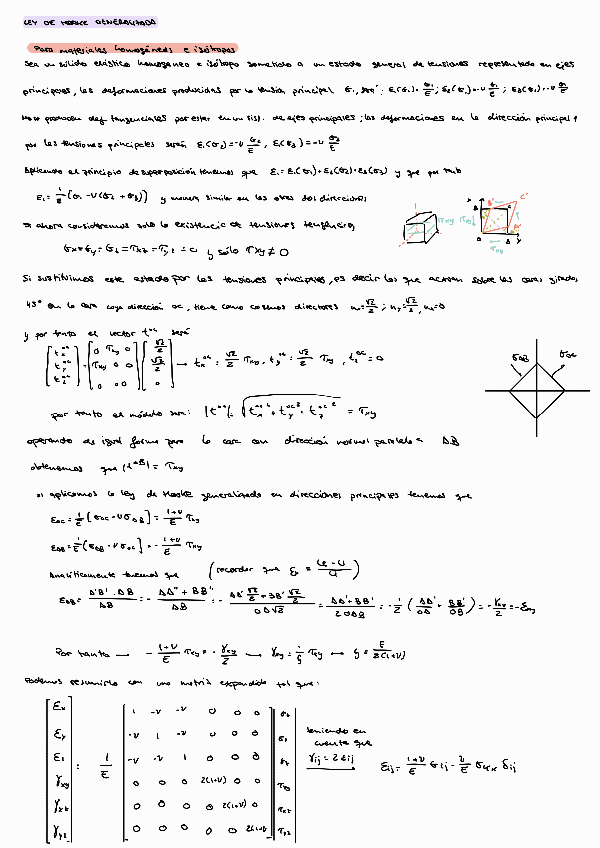 LEY DE HOOKE GENERALIZADA
Para materiales homogéneos e isótopos
Sea un sólido elástico homogéneo e isótopo sometido a un estado general de tensiones representado en ejes
principales, las deformaciones producidas por la tensión principal σ₁, será: ε₁(σ₁) = σ₁/E ; ε₂(σ₁) = -ν σ₁/E ; ε₃(σ₁) = -ν σ₁/E
No se producen def. tangenciales por estar en un sist. de ejes principales; las deformaciones en la dirección principal 1
por las tensiones principales serán ε₁(σ₂) = -ν σ₂/E, ε₁(σ₃) = -ν σ₃/E
Aplicando el principio de superposición tenemos que ε₁ = ε₁(σ₁) + ε₁(σ₂) + ε₁(σ₃) y que por tanto
ε₁ = 1/E (σ₁ - ν(σ₂ + σ₃)) y manera similar en las otras dos direcciones
si ahora consideramos solo la existencia de tensiones tangenciales
σx = σy = σz = τxz = τyz = 0 y sólo τxy ≠ 0
τxy
τxy
Si sustituimos este estado por las tensiones principales, es decir las que actúan sobre las caras giradas
45° en la cara cuya dirección OC, tiene como cosenos directores nx = √2/2 ; ny = √2/2, nz = 0
y por tanto el vector t^oc será
[tx^oc ty^oc tz^oc] = [0 τxy 0; τxy 0 0; 0 0 0] [√2/2 √2/2 0] → tx^oc = √2/2 τxy, ty^oc = √2/2 τxy, tz^oc = 0
σDB σOC
por tanto el módulo será: |t^oc| = √(tx^oc² + ty^oc² + tz^oc²) = τxy
operando de igual forma para la cara con dirección normal paralela a DB
obtenemos que |t^DB| = τxy
si aplicamos la ley de Hooke generalizada en direcciones principales tenemos que
εOC = 1/E [σOC - ν σDB] = (1+ν)/E τxy
εDB = 1/E [σDB - ν σOC] = -(1+ν)/E τxy
Analíticamente tenemos que (recordar que
Por tanto → -(1+ν)/E τxy = -γxy/2 → γxy = 1/G τxy → G = E/2(1+ν)
Podemos resumirlo con una matriz expandida tal que:
εx 1 -ν -ν 0 0 0 σx
εy -ν 1 -ν 0 0 0 σy
εz -ν -ν 1 0 0 0 σz
γxy = 1/E 0 0 0 2(1+ν) 0 0 τxy
γxz 0 0 0 0 2(1+ν) 0 τxz
γyz 0 0 0 0 0 2(1+ν) τyz
teniendo en
cuenta que
γij = 2εij
εij = (1+ν)/E σij - ν/E σkk δij